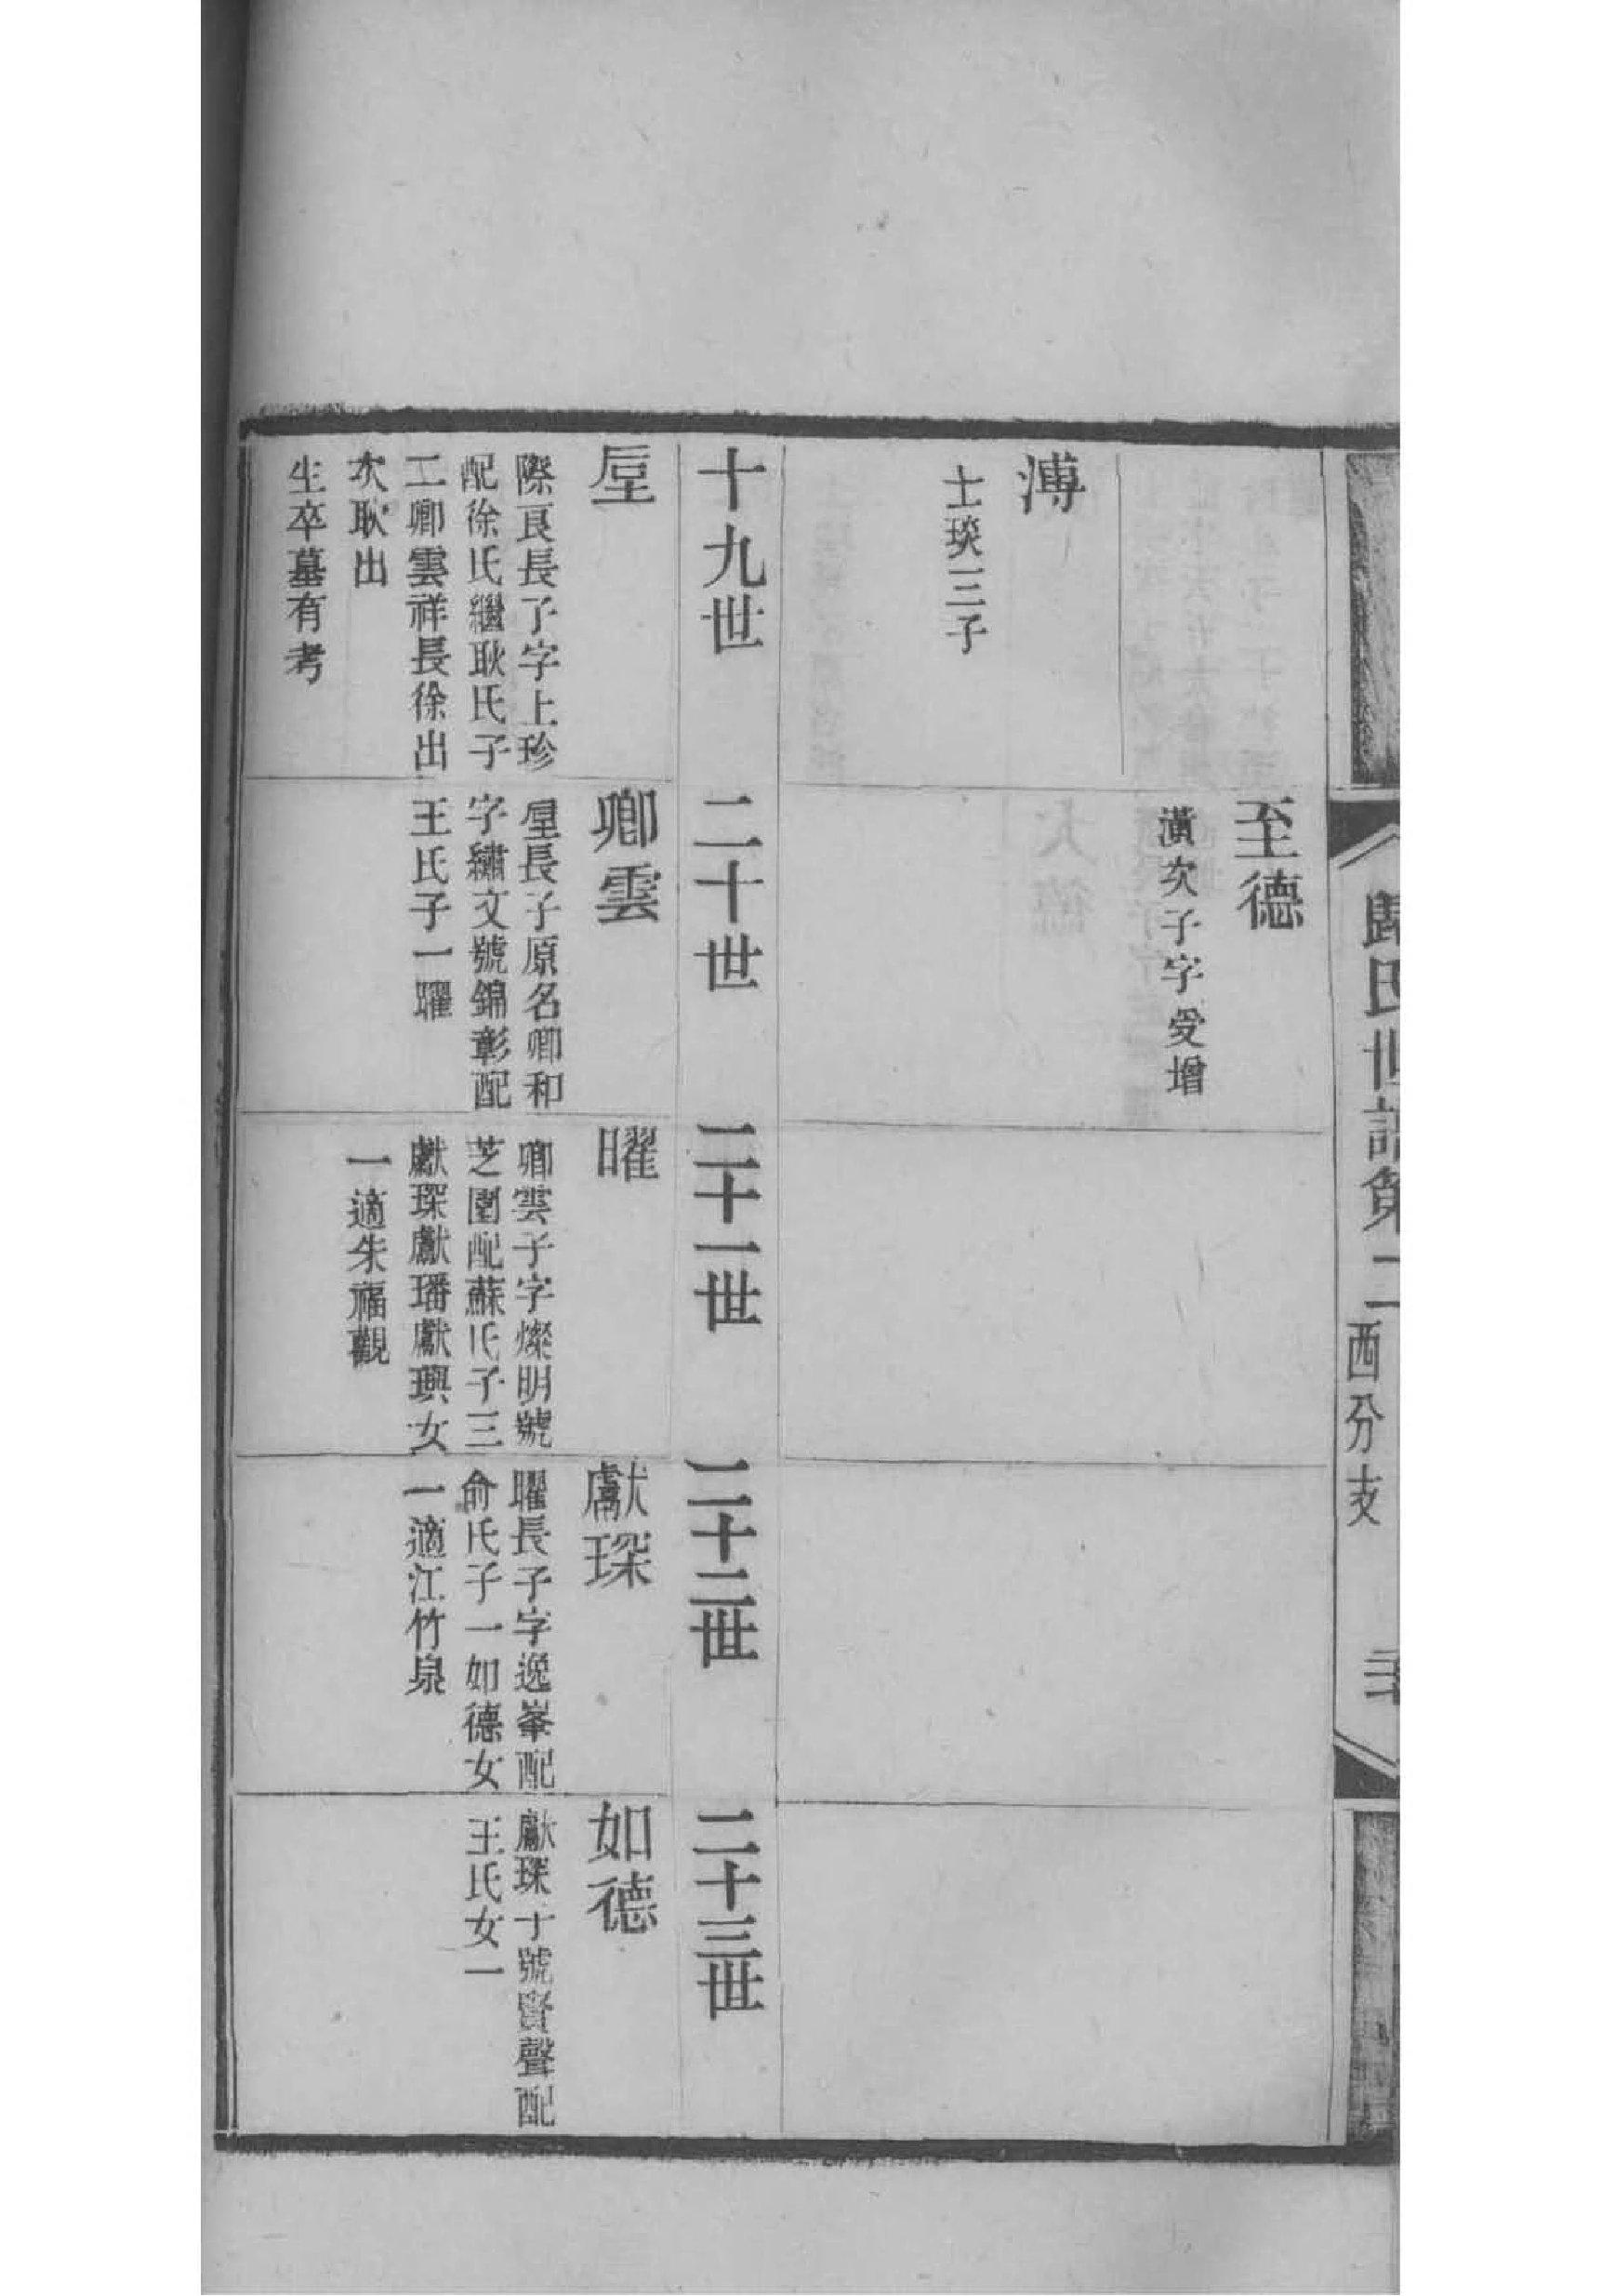 歸氏世譜第二
西分支
至德
潢次子字受增
溥
士琰三子
十九世
二十世
二十一世
二十二世
二十三世
垕
際良長子字上珍
配徐氏繼耿氏子
二卿雲祥長徐出
次耿出
生卒墓有考
卿雲
垕長子原名卿和
字繡文號錦彰配
王氏子一曜
曜
卿雲子字燦明號
芝圃配蘇氏子三
獻琛獻璠獻璵女
一適朱福觀
獻琛
曜長子字逸峯配
俞氏子一如德女
一適江竹泉
如德
獻琛子號賢聲配
王氏女一